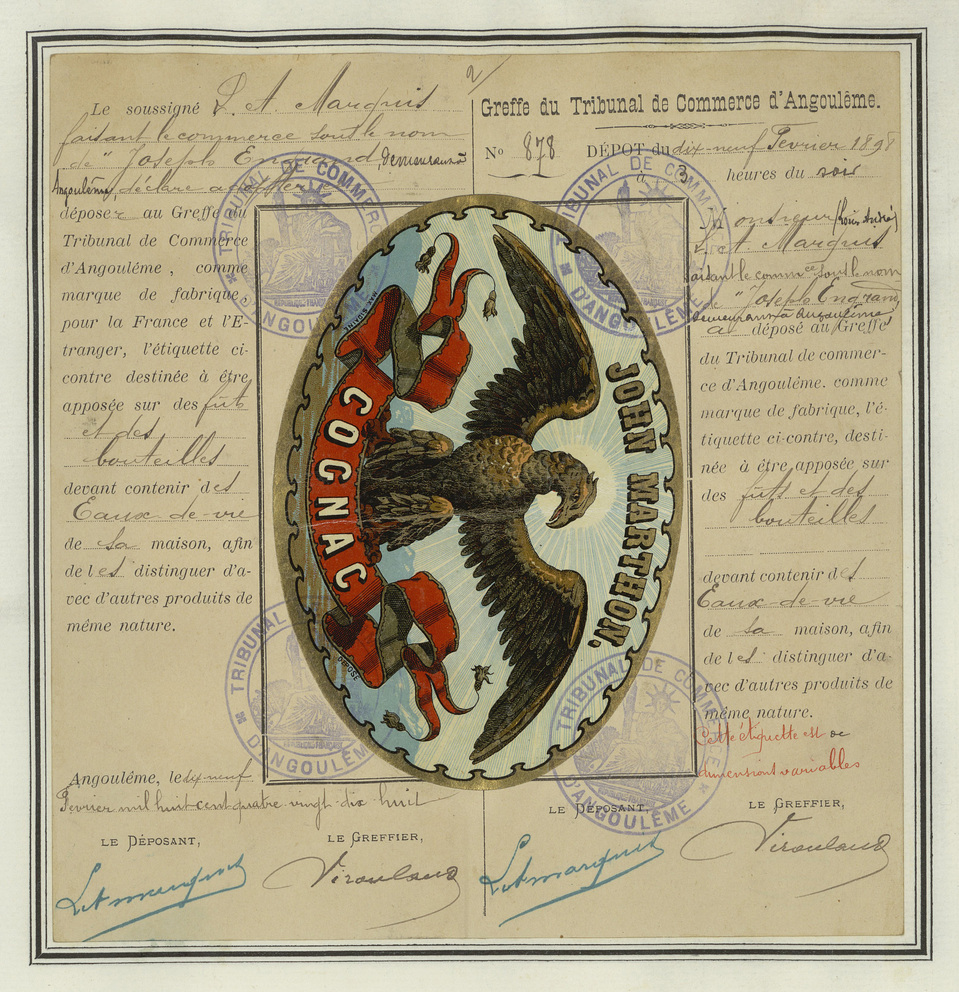 2/
Le soussigné L. A. Marquis
faisant le commerce sous le nom
de "Joseph Engrand, demeurant à
Angoulême, déclare
déposer au Greffe du
Tribunal de Commerce
d'Angoulême, comme
marque de fabrique,
pour la France et l'E-
tranger, l'étiquette ci-
contre destinée à être
apposée sur des fûts
et des
bouteilles
devant contenir des
Eaux-de-vie
de sa maison, afin
de les distinguer d'a-
vec d'autres produits de
même nature.
Angoulême, le dix-neuf
Février mil huit cent quatre-vingt-dix-huit
LE DÉPOSANT,
LE GREFFIER,
L A Marquis
Viroulaud
COGNAC
JOHN MARTHON.
DÉPOSÉ
Greffe du Tribunal de Commerce d'Angoulême.
No 878 DÉPOT du dix-neuf Février 1898
à 3 heures du soir
Monsieur (Louis André)
L. A. Marquis
faisant le commce sous le nom
de "Joseph Engrand
demeurant à Angoulême
a déposé au Greffe
du Tribunal de commer-
ce d'Angoulême. comme
marque de fabrique, l'é-
tiquette ci-contre, desti-
née à être apposée sur
des fûts et des
bouteilles
devant contenir des
Eaux-de-vie
de sa maison, afin
de les distinguer d'a-
vec d'autres produits de
même nature.
Cette étiquette est de
dimensions variables
LE DÉPOSANT,
LE GREFFIER,
L A Marquis
Viroulaud
TRIBUNAL DE COMMERCE
D'ANGOULÊME
TRIBUNAL DE COMMERCE
D'ANGOULÊME
TRIBUNAL
D'ANGOULÊME
TRIBUNAL DE COMMERCE
D'ANGOULÊME